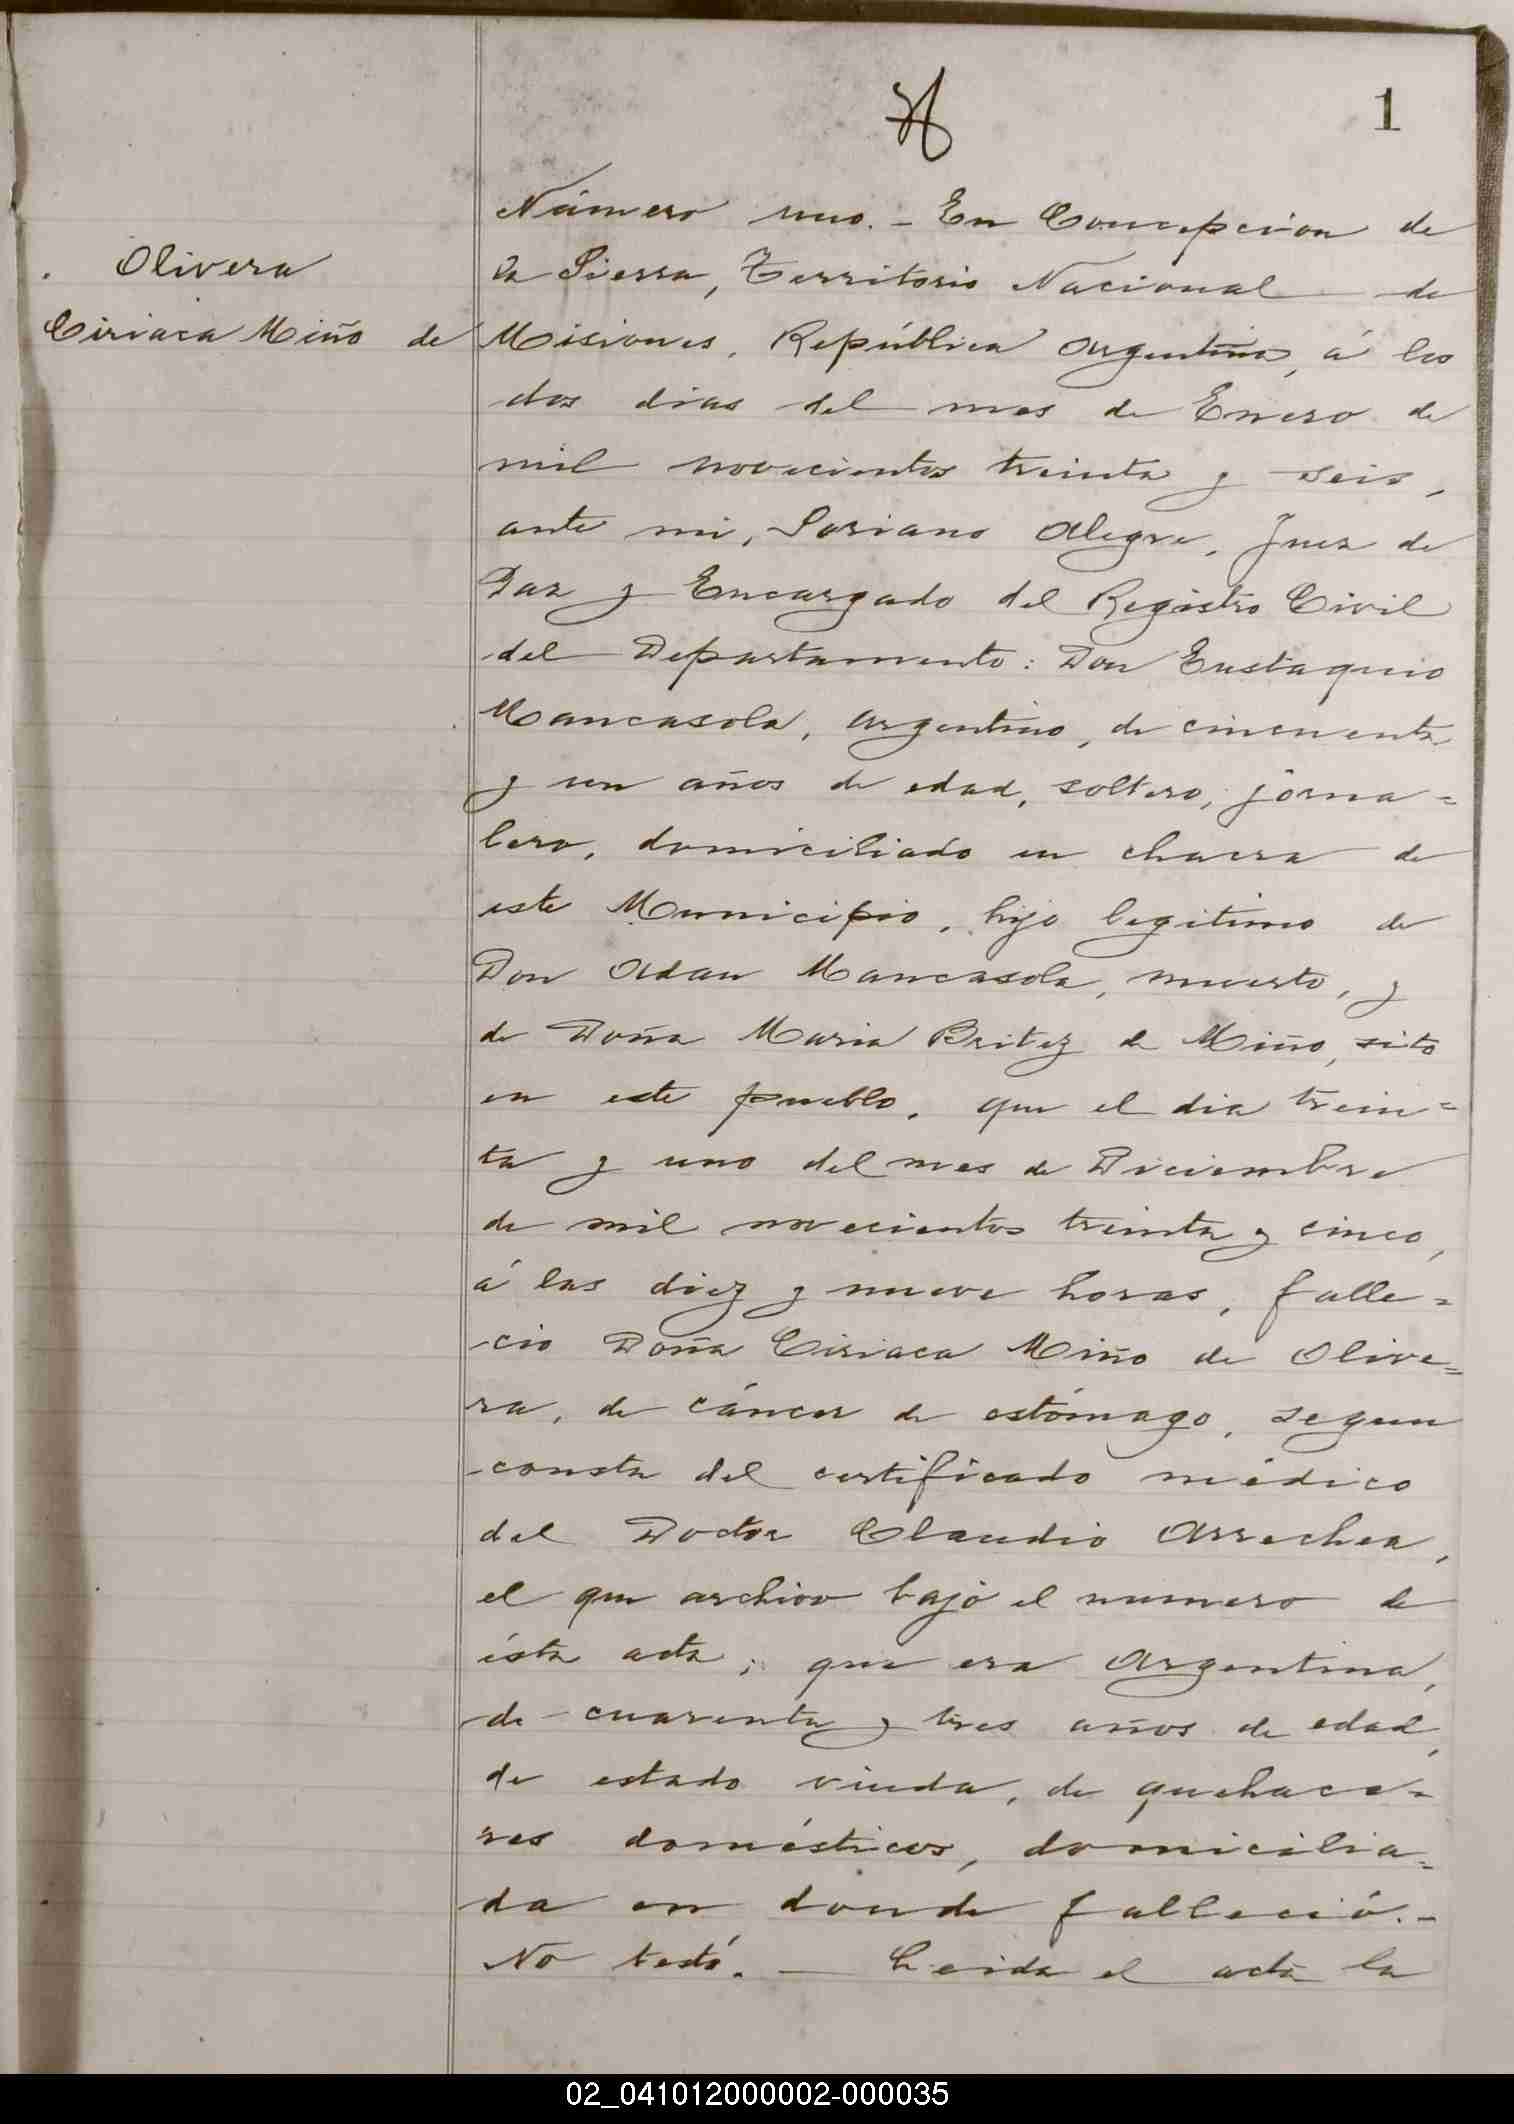 1
Número uno. - En Concepcion de
la Sierra, Territorio Nacional de
Olivera
Ciriaca Miño de
Misiones, República Argentina, á los
dos dias del mes de Enero de
mil novecientos treinta y seis,
ante mi, Soriano Alegre, Juez de
Paz y Encargado del Registro Civil
del Departamento: Don Eustaquio
Mancasola, argentino, de cincuenta
y un años de edad, soltero, jorna=
lero, domiciliado en chacra de
este Municipio, hijo legitimo de
Don Adan Mancasola, muerto, y
de Doña Maria Britez de Miño, sito
en este pueblo, que el dia trein=
ta y uno del mes de Diciembre
de mil novecientos treinta y cinco,
á las diez y nueve horas, falle=
cio Doña Ciriaca Miño de Olive=
ra, de cáncer de estómago, segun
consta del certificado médico
del Doctor Claudio Arrechea,
el que archivo bajo el numero de
ésta acta; que era Argentina,
de cuarenta y tres años de edad,
de estado viuda, de quehace=
res domésticos, domicilia=
da en donde falleció.-
No testó. - Leida el acta la
02_041012000002-000035